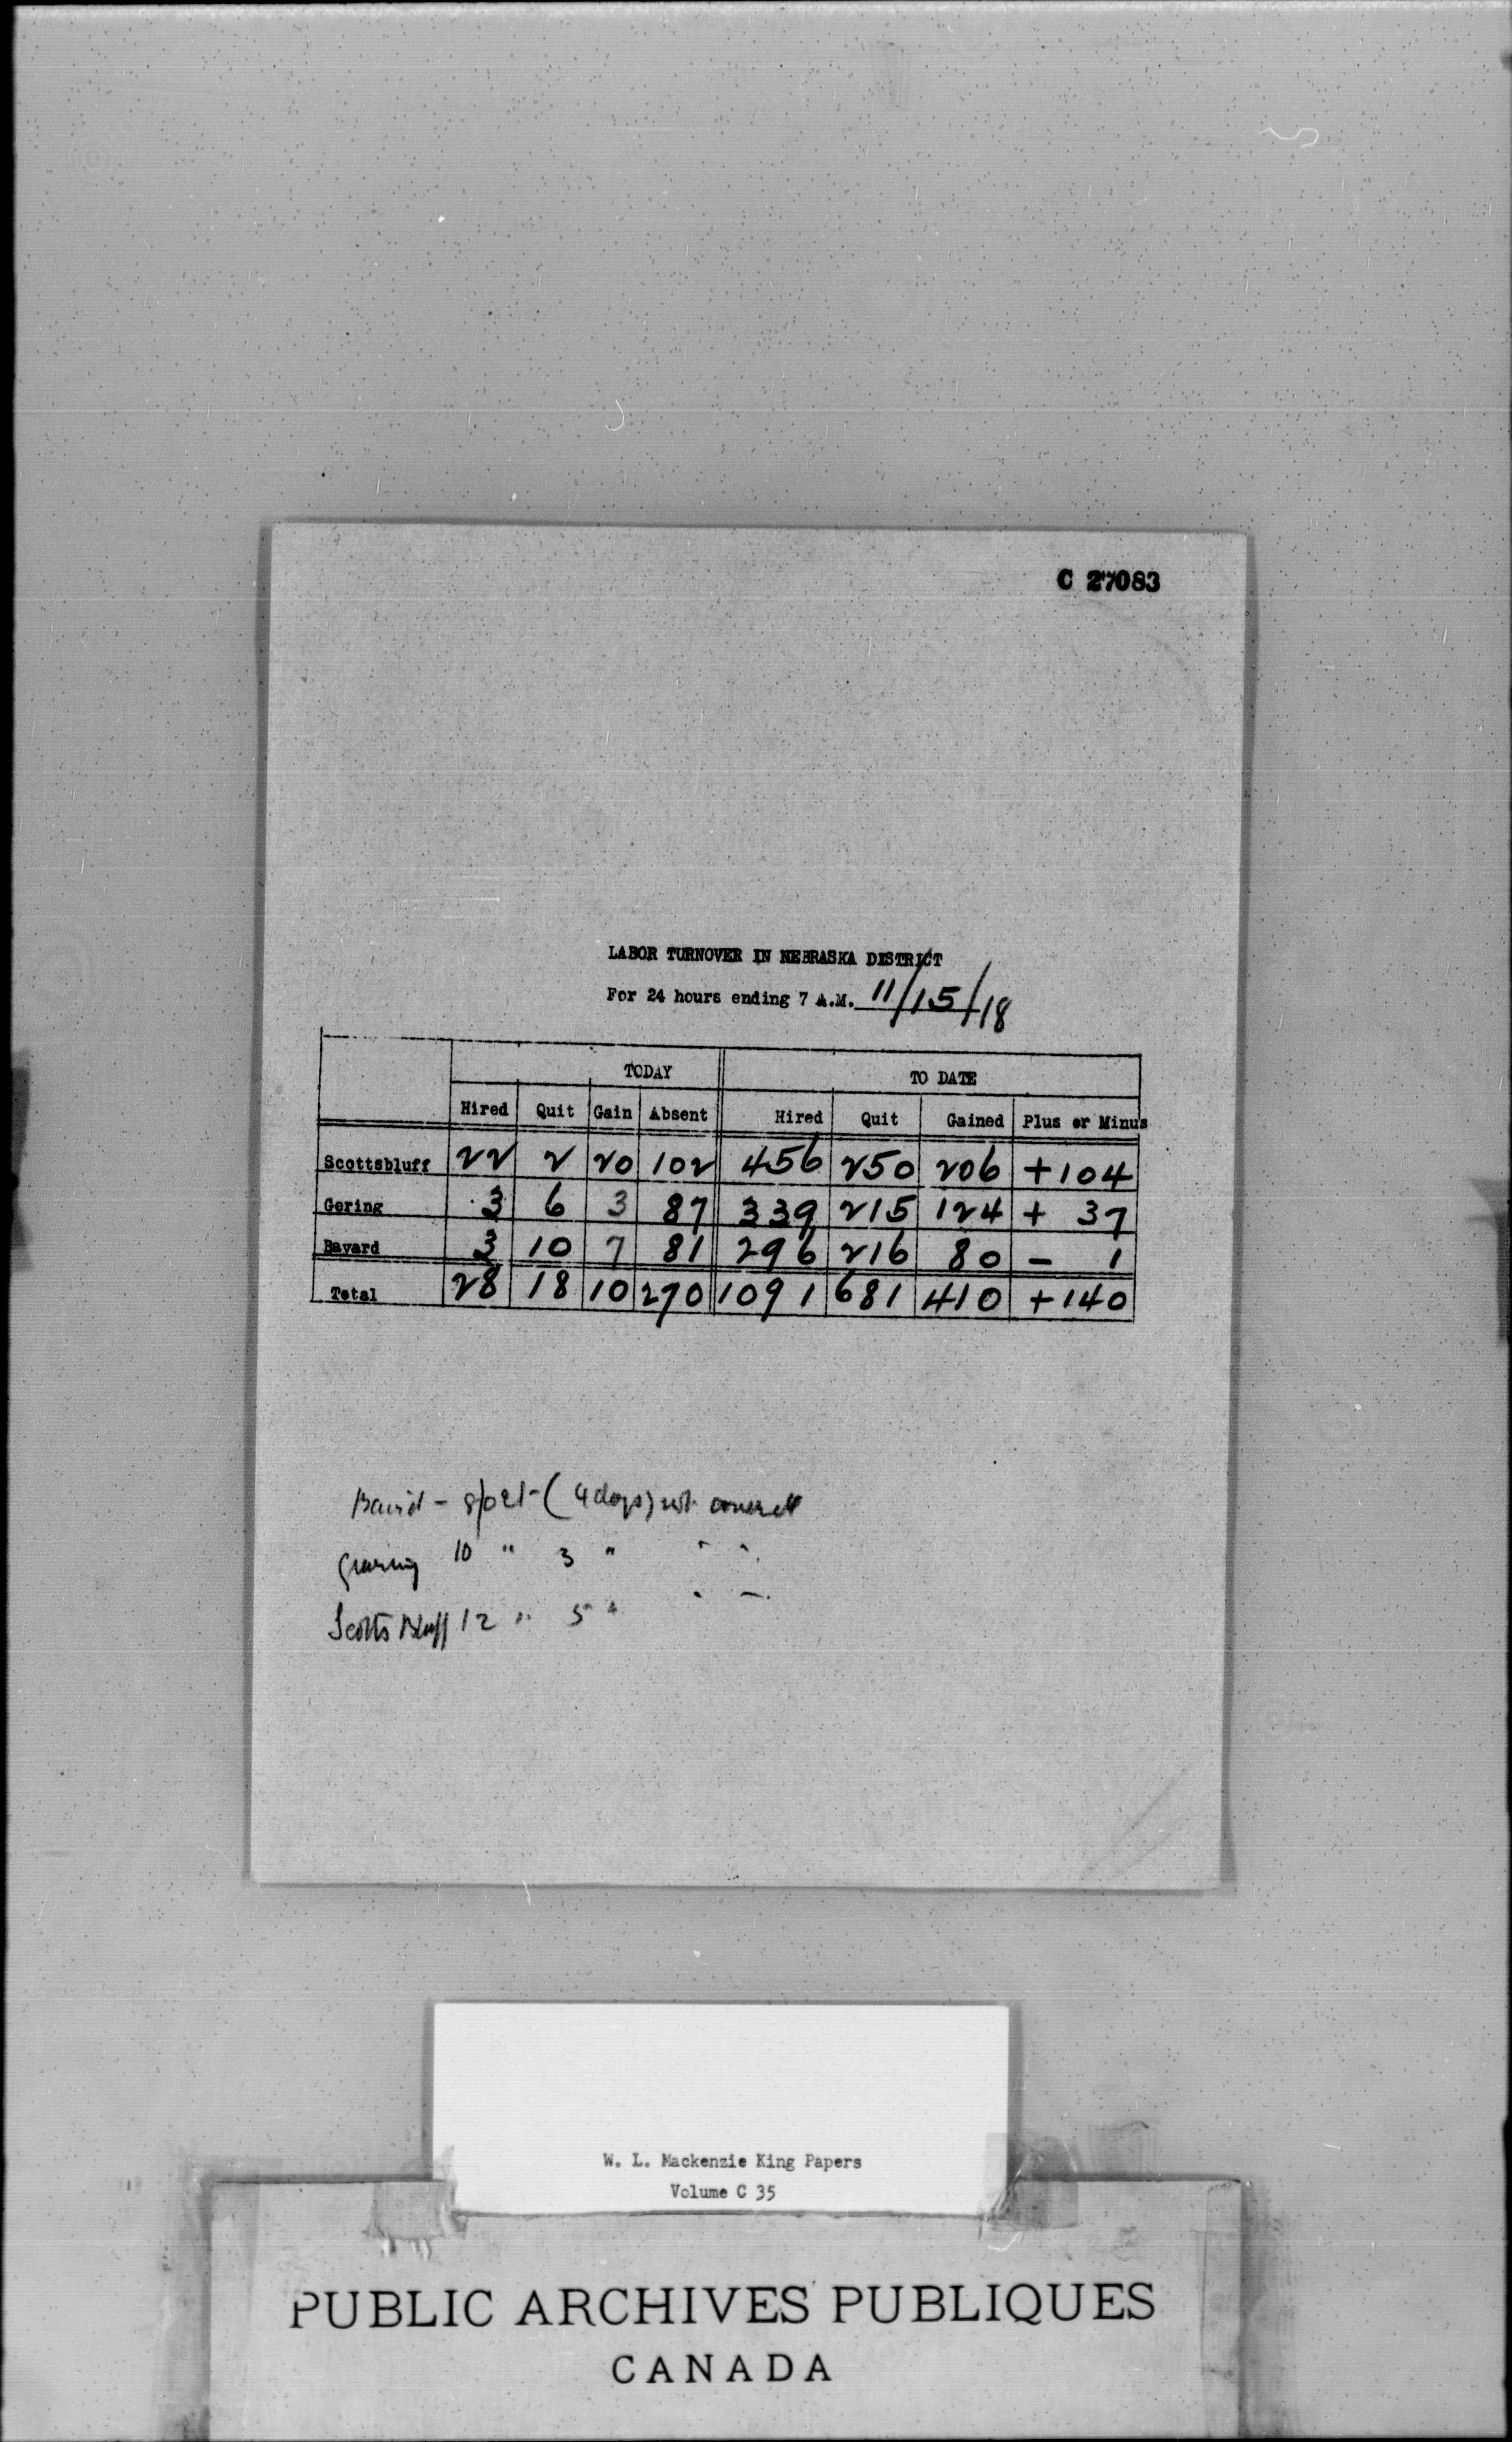 C 27083
LABOR TURNOVER IN NEBRASKA DISTRICT
For 24 hours ending 7 A.M. 11/15/18
TODAY TO DATE
Hired Quit Gain Absent Hired Quit Gained Plus or Minus
Scottsbluff 22 2 20 102 456 250 206 +104
Gering 3 6 3 87 339 215 124 + 37
Bayard 3 10 7 81 296 216 80 - 1
Total 28 18 10 270 1091 681 410 +140
- (4 days) not
10 " 3 " " "
Scotts Bluff 12 " 5 "
W. L. Mackenzie King Papers
Volume C 35
PUBLIC ARCHIVES PUBLIQUES
CANADA